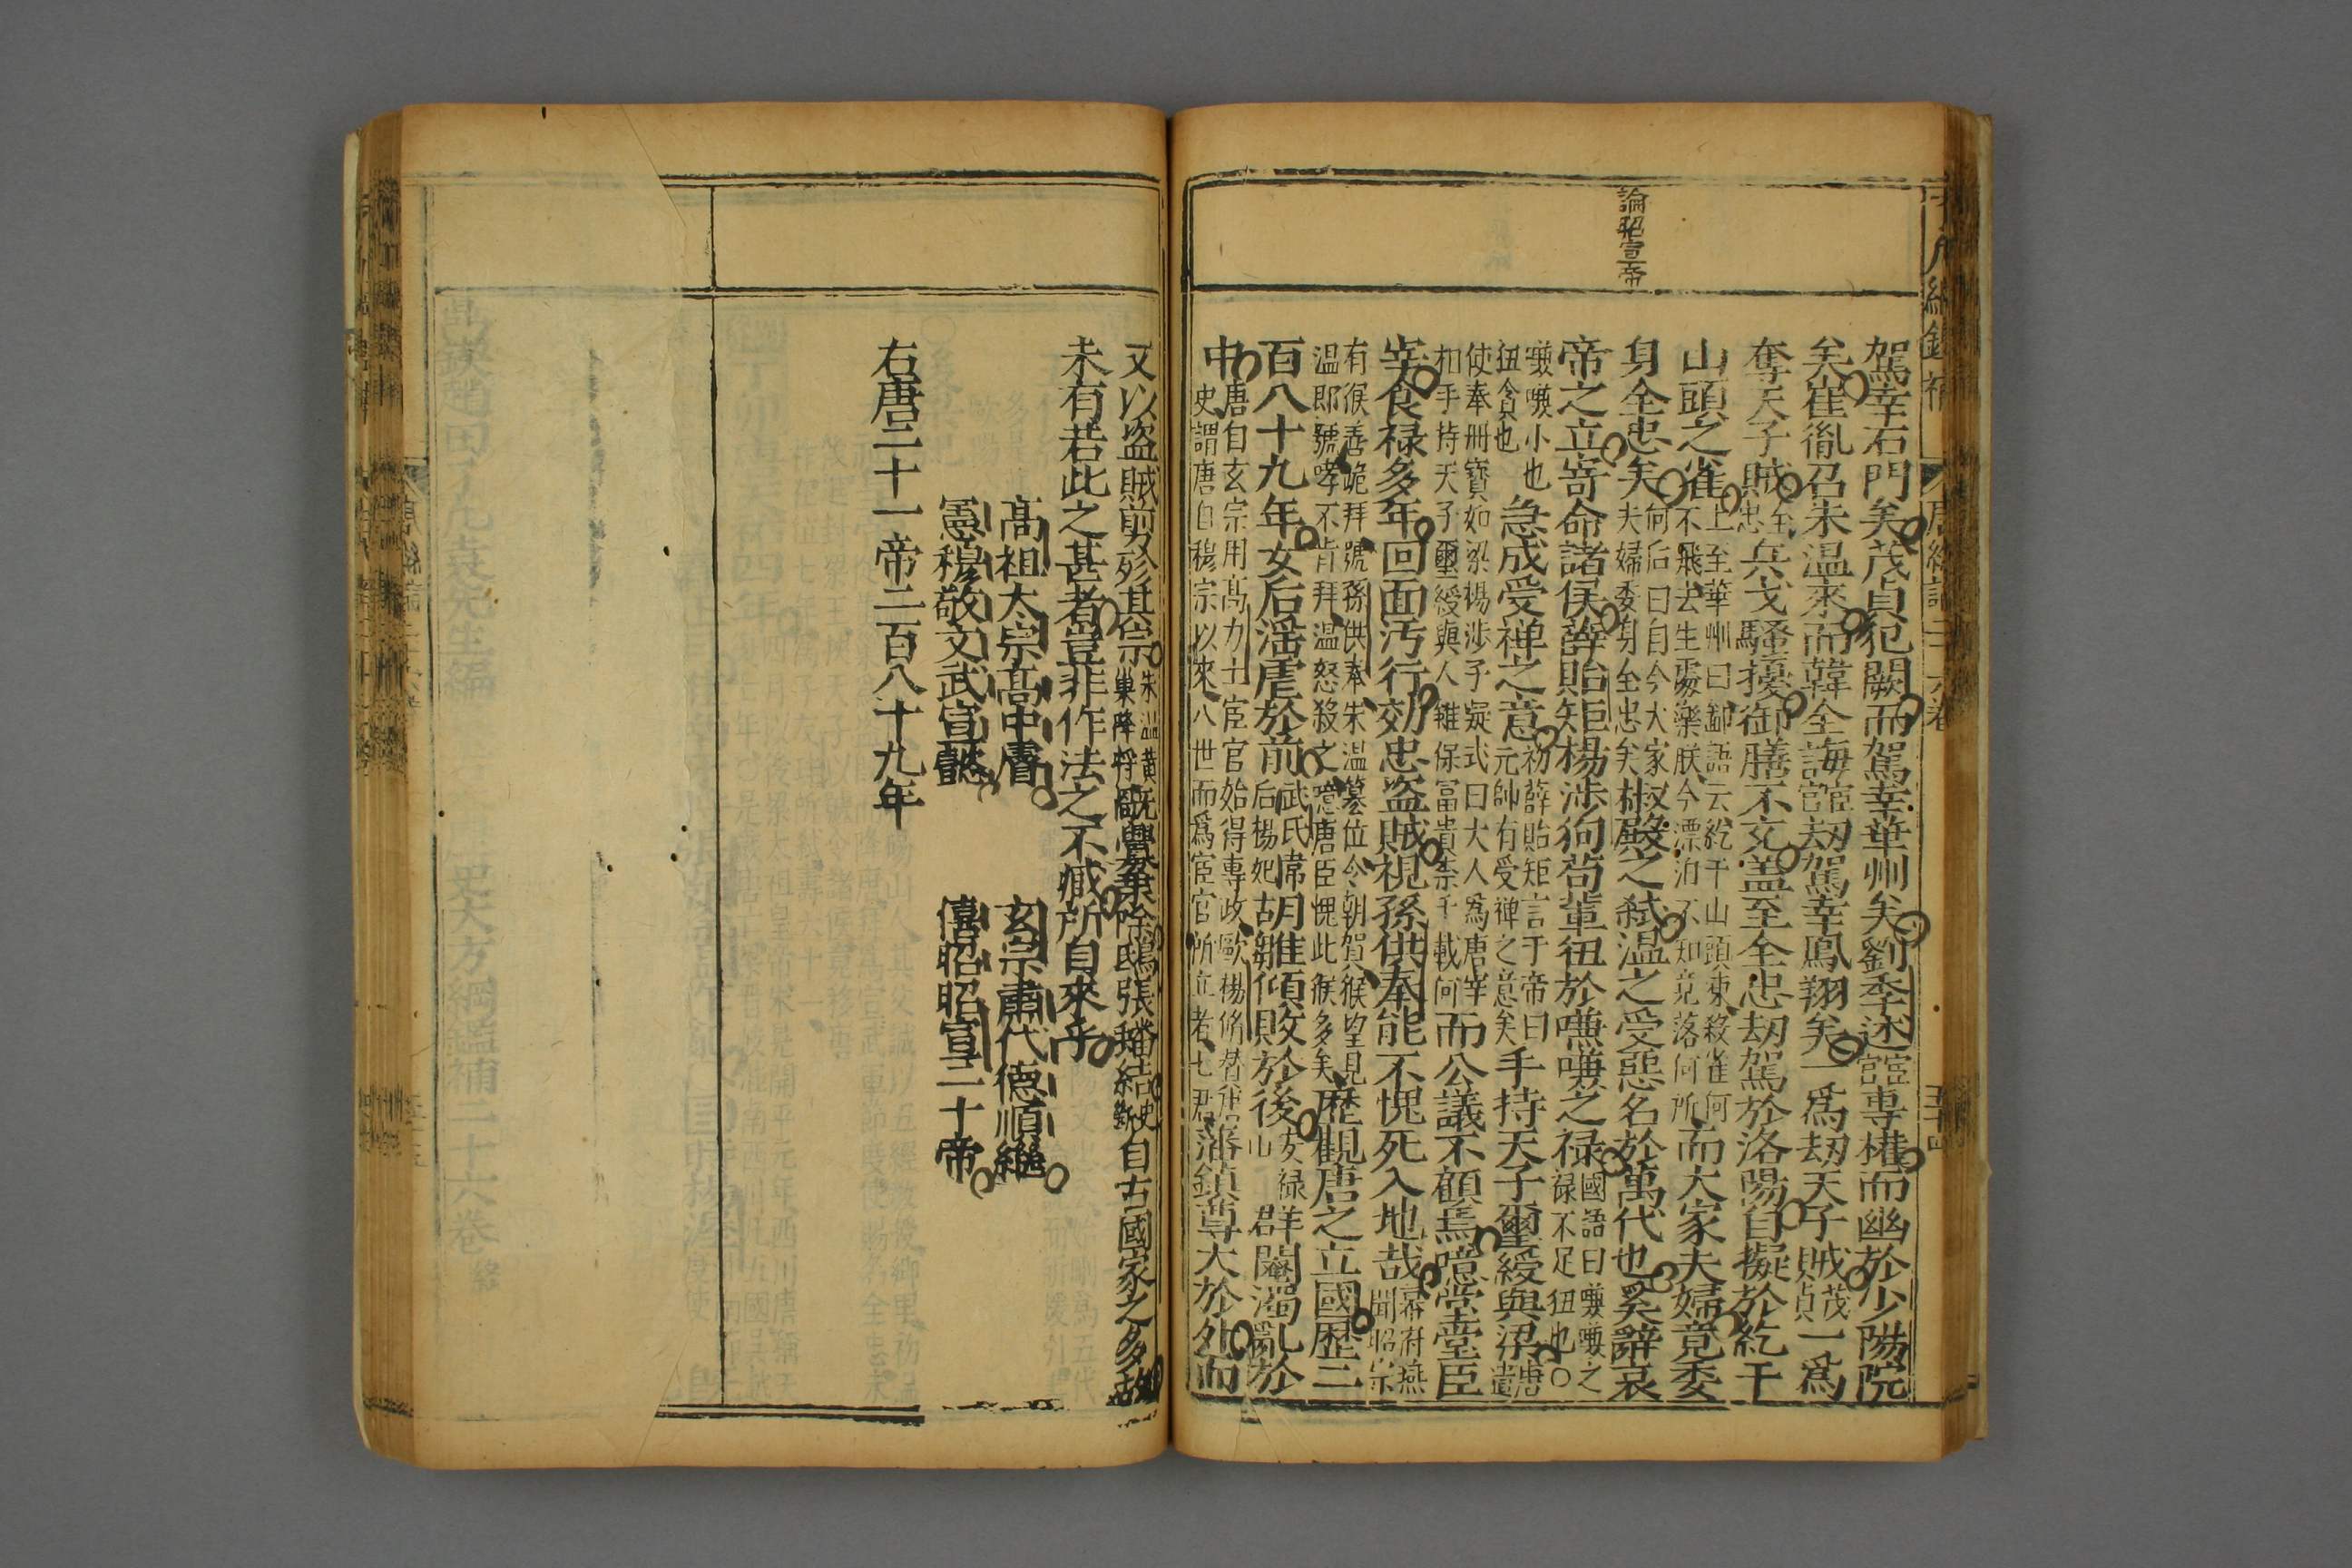 論昭宣帝
駕幸石門矣茂貞犯闕而駕幸華州矣劉季述宦官專權而幽於少陽院
矣崔胤召朱溫來而韓全誨宦官刼駕幸鳳翔矣一爲刼天子賊茂貞一爲
奪天子賊全忠兵戈騷擾御膳不充蓋至全忠刼駕於洛陽自擬於紇干
山頭之雀上至華州曰鄙語云紇干山頭凍殺雀何不飛去生處樂朕今漂泊不知竟落何所而大家夫婦竟委
身全忠矣何后曰自今大家夫婦委身全忠矣椒殿之弒溫之受惡名於萬代也奚辭哀
帝之立寄命諸侯薛貽矩楊涉狗茍輩狃於嗛嗛之禄國語曰嗛嗛之禄不足狃也○
嗛嗛小也狃貪也急成受禅之意初薛貽矩言于帝曰元帥有受禅之意矣手持天子璽綬與梁唐遣
使奉冊寶如梁楊涉子凝式曰大人爲唐宰相手持天子璽綬與人雖保富貴柰千載何而公議不顧焉噫堂堂臣
宰食禄多年回面汚行効忠盜賊視孫供奉能不愧死入地哉幕府燕聞昭宗
有猴善跪拜號孫供奉朱溫簒位令朝賀猴望見溫即號哮不肯拜溫怒殺之噫唐臣愧此猴多矣歷觀唐之立國歷二
百八十九年女后滛虐於前武氏韋后楊妃胡雛傾敗於後安禄山群閹濁亂於
中唐自玄宗用高力士宦官始得專政歐楊脩替述史謂唐自穆宗以來八世而爲宦官所立者七君藩鎮尊大於外而
又以盜賊剪殄其宗朱溫黃巢降将旣興秦除鴟張結史斷自古國家之多故
未有若此之甚者豈非作法之不臧所自來乎
高祖太宗高中睿玄宗肅代德順繼
憲穆敬文武宣懿僖昭昭宣二十帝
右唐二十一帝二百八十九年